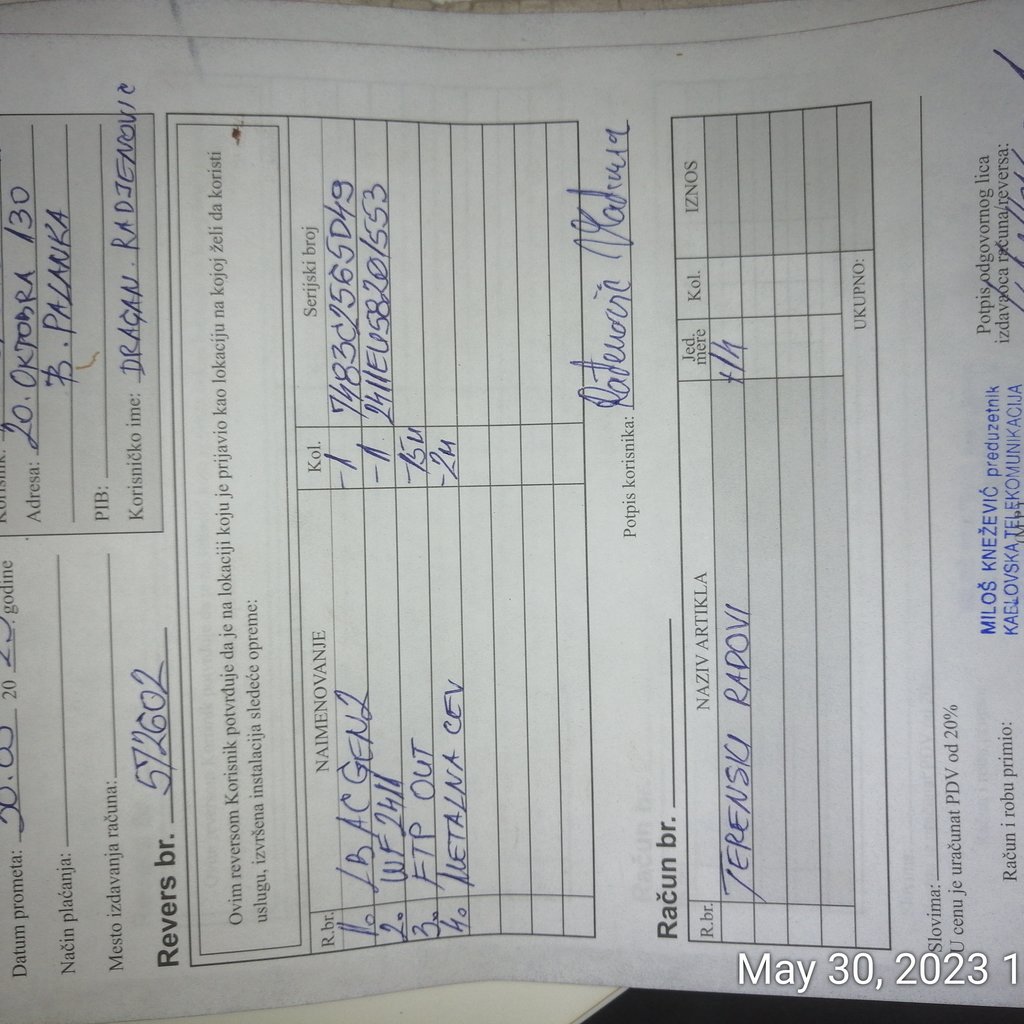 Datum prometa: 30.05 20 23. godine
Način plaćanja:
Mesto izdavanja računa:
Korisnik:
Adresa: 20. OKTOBRA 130
B. PALANKA
PIB:
Korisničko ime: DRAGAN. RADJENOVIC
Revers br. 572602
Ovim reversom Korisnik potvrđuje da je na lokaciji koju je prijavio kao lokaciju na kojoj želi da koristi
uslugu, izvršena instalacija sledeće opreme:
R.br. NAIMENOVANJE Kol. Serijski broj
1. LB AC GEN2 -1 7483C2565D49
2. WF2411 -1 2411EU5820/553
3. FTP OUT -15m
4. METALNA CEV -2m
Potpis korisnika:
Račun br.
R.br. NAZIV ARTIKLA Jed. mere Kol. IZNOS
TERENSKI RADOVI
UKUPNO:
Slovima:
U cenu je uračunat PDV od 20%
Račun i robu primio:
MILOŠ KNEŽEVIĆ preduzetnik
KABLOVSKA TELEKOMUNIKACIJA
Potpis odgovornog lica
izdavaoca računa/reversa:
May 30, 2023 1